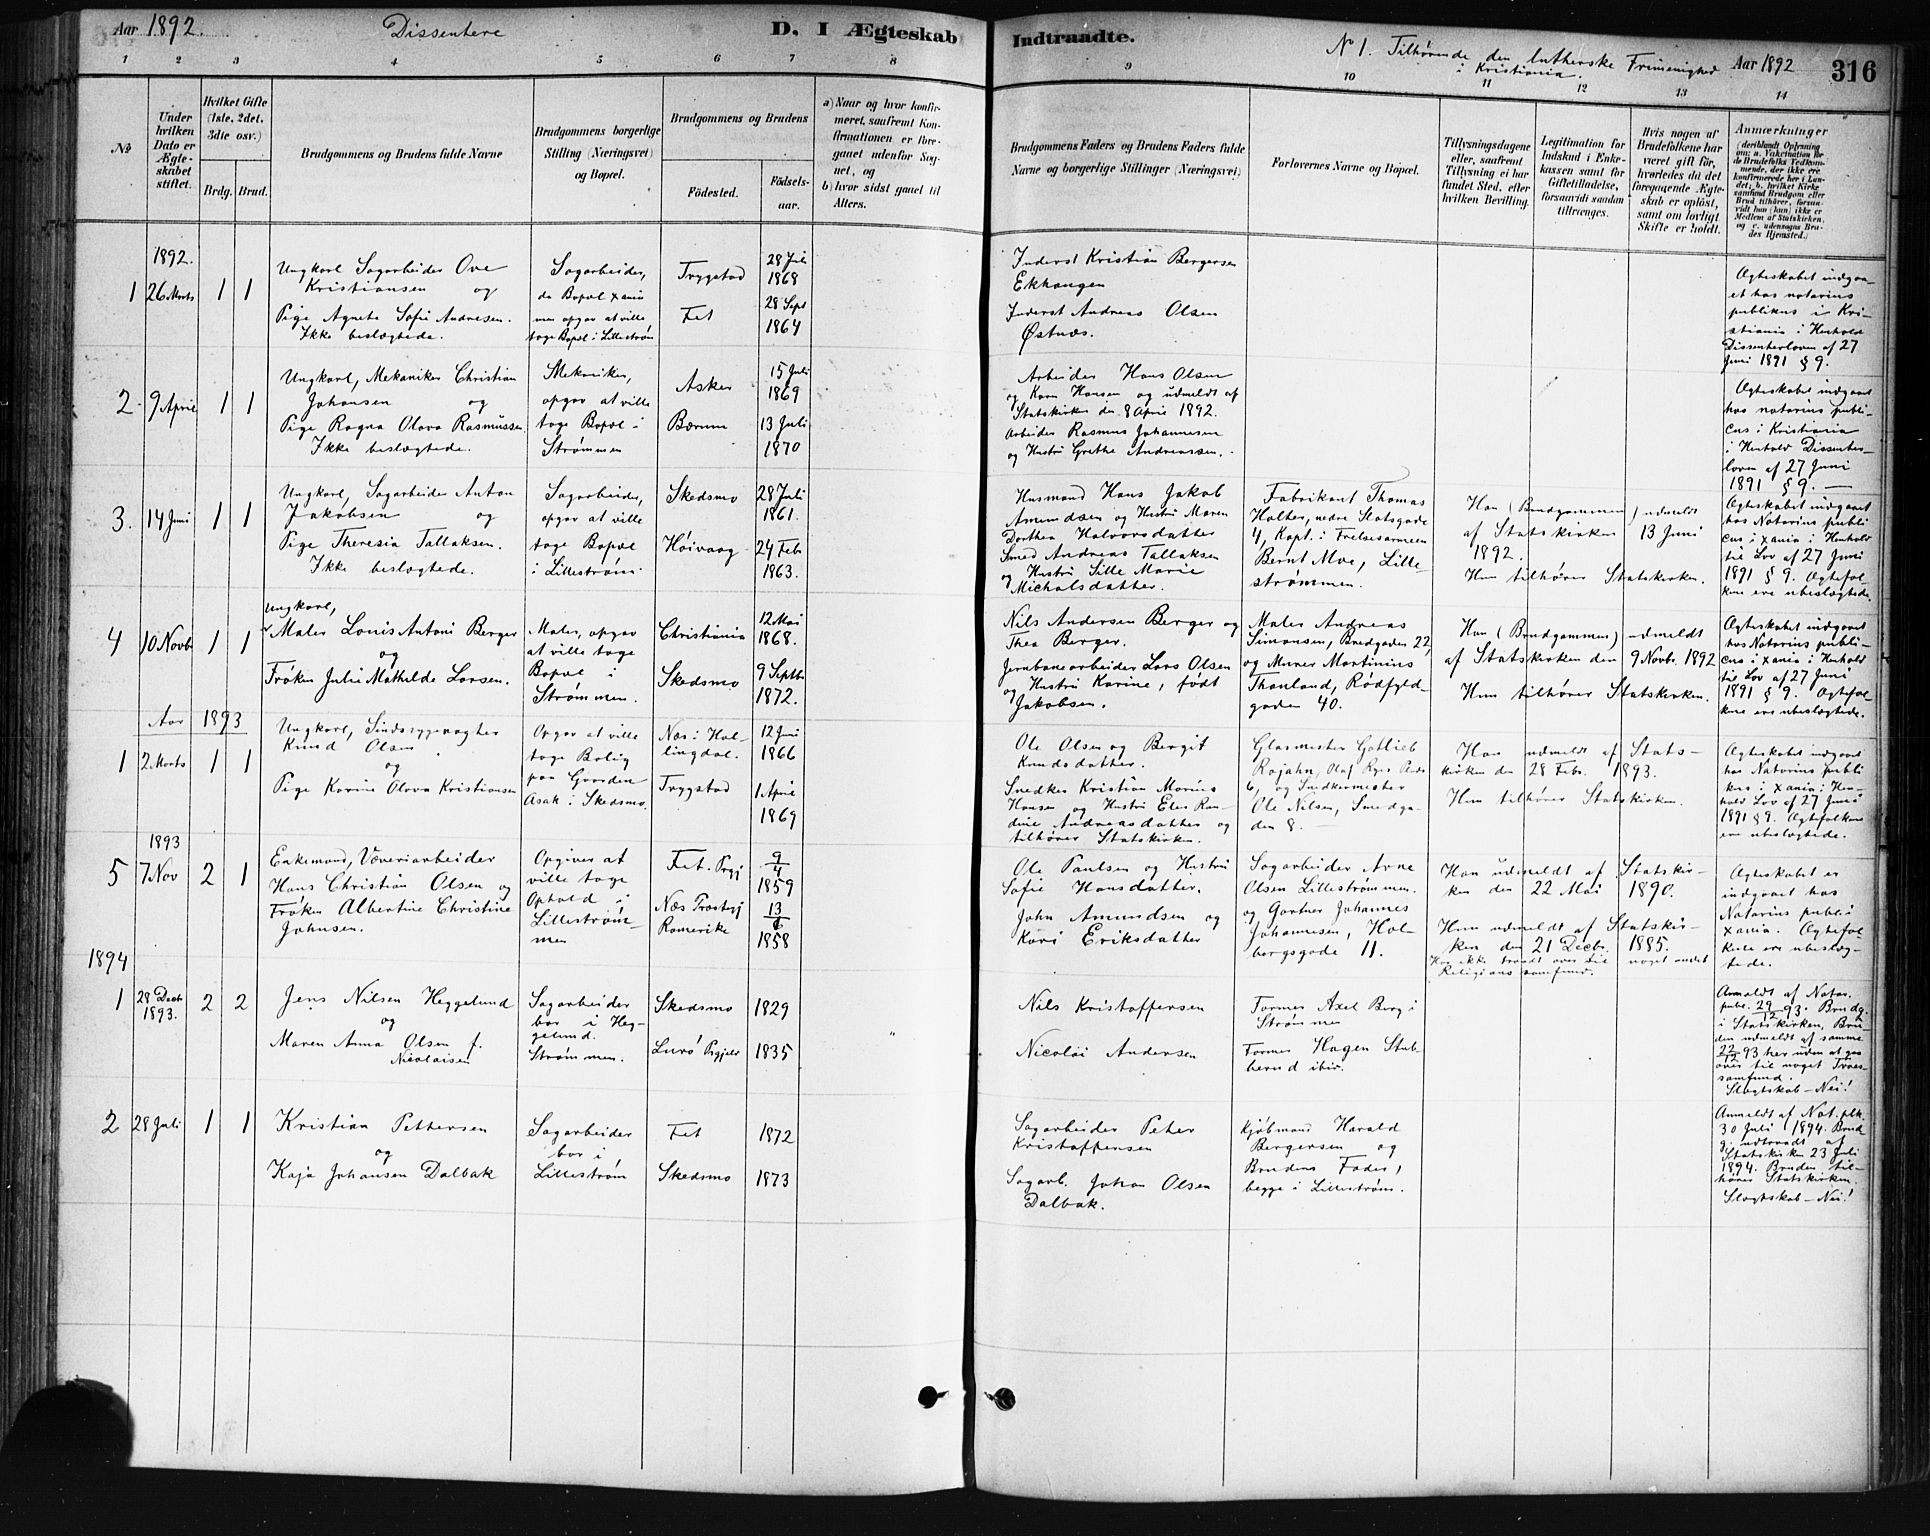 Aar 1892.
Dissentere
D. I Ægteskab
Indtraadte.
No 1. Tilhørende den lutherske Frimenighed
i Kristiania.
Aar 1892
316
1 2 3 4 5 6 7 8
9 10 11 12 13 14
No
Under
hvilken
Dato er
Ægte-
skabet
stiftet.
Hvilket Gifte
(1ste, 2det,
3die osv.)
Brdg. Brud.
Brudgommens og Brudens fulde Navne
Brudgommens borgerlige
Stilling (Næringsvei)
og Bopæl.
Brudgommens og Brudens
Fødested.
Fødsels-
aar.
a) Naar og hvor konfir-
meret, saafremt Kon-
firmationen er fore-
gaaet udenfor Sog-
net, og
b) hvor sidst gaaet til
Alters.
Brudgommens Faders og Brudens Faders fulde
Navne og borgerlige Stillinger (Næringsvei)
Forlovernes Navne og Bopæl.
Tillysningsdagene
eller, saafremt
Tillysning ei har
fundet Sted, efter
hvilken Bevilling.
Legitimation for
Indskud i Enke-
kassen samt for
Giftetilladelse,
forsaavidt saadan
tiltrænges.
Hvis nogen af
Brudefolkene har
været gift før,
hvorledes da det
foregaaende Ægte-
skab er opløst,
samt om lovligt
Skifte er holdt.
Anmærkninger
(deriblandt Oplysning
om: a. Vakcination for
de Brudefolks Vedkom-
mende, der ikke ere
konfirmerede her i Lan-
det; b. hvilket Kirke-
samfund Brudgom eller
Brud tilhører, forsaa-
vidt han (hun) ikke er
Medlem af Statskirken,
og c. udensogns Bru-
des Hjemsted.)
1892.
1 26 Marts 1 1
Ungkarl Sagarbeider Ove
Kristiansen og
Pige Agnete Sofie Andresen.
Ikke beslægtede.
Sagarbeider,
da Bopæl Xania
men opgav at ville
tage Bopæl i Lillestrøm
Trygstad
Fet
28 Juli
1868
28 Sept
1864
Inderst Kristian Bergersen
Ekhaugen
Inderst Andreas Olsen
Østnæs.
Ægteskabet indgaa-
et hos notarius
publikus i Kri-
stiania i Henhold
Dissenterloven af 27
Juni 1891 § 9.
2 9 April 1 1
Ungkarl, Mekaniker Christian
Johansen og
Pige Ragna Olava Rasmussen
Ikke beslægtede.
Mekaniker,
opgav at ville
tage Bopæl i
Strømmen
Asker
Bærum
15 Juli
1869
13 Juli
1870
Arbeider Hans Olsen
og Karn Hansen og udmeldt af
Statskirken den 8 April 1892.
Arbeider Rasmus Johannesen
og Hustri Grethe Andreassen.
Ægteskabet indgaaet
hos notarius publi-
cus i Kristiania
i Henhold Dissenter-
loven af 27 Juni
1891 § 9. —
3. 14 Juni 1 1
Ungkarl, Sagarbeider Anton
Jakobsen og
Pige Theresia Tallaksen.
Ikke beslægtede.
Sagarbeider,
opgav at ville
tage Bopæl
i Lillestrøm.
Skedsmo
Høivaag
28 Juli
1861.
24 Feb
1863.
Husmand Hans Jakob
Amundsen og Hustri Maren
Dorthea Halvorsdatter
Smed Andreas Tallaksen
og Hustri Sille Marie
Michalsdatter.
Fabrikant Thomas
Halter, nedre Slotsgade
4, Kapt. i Frelsesarmeen
Bernt Moe, Lille-
strømmen.
Han (Brudgommen) udmeldt
af Statskirken 13 Juni
1892.
Hun tilhører Statskirken.
Ægteskabet indgaaet
hos Notarius publi
cus i Xania i Henhold
til Lov af 27 Juni
1891 § 9. Ægtefol-
kene ere ubeslægtede.
4 10 Novb 1 1
Ungkarl,
Maler Louis Antoni Berger
og
Frøken Julie Mathilde Larsen.
Maler, opgav
at ville tage
Bopæl i
Strømmen.
Christiania
Skedsmo
12 Mai
1868.
9 Septb
1872.
Nils Andersen Berger og
Thea Berger.
Jernbanearbeider Lars Olsen
og Hustri Karine, født
Jakobsen.
Maler Andreas
Simonsen, Bredgaden 22,
og Murer Martinius
Thanland, Rødfyld-
gaden 40.
Han (Brudgommen) udmeldt
af Statskirken den 9 Novbr. 1892
Hun tilhører Statskirken.
Ægteskabet indgaaet
hos Notarius publi
cus i Xania i Henhold
til Lov af 27 Juni
1891 § 9. Ægtefol-
kene ere ubeslægtede.
Aar 1893
1 2 Marts 1 1
Ungkarl, Sindssygevogter
Knud Olsen
og
Pige Karine Olava Kristiansen
Opgav at ville
tage Bolig
paa Gaarden
Asak i Skedsmo.
Næs i Hal-
lingdal.
Trygstad
12 Juni
1866
1 April
1869
Ole Olsen og Bergit
Knudsdatter.
Snedker Kristian Marius
Hansen og Hustri Elen Ran-
dine Andreasdatter og
tilhører Statskirken.
Glasmester Gotlieb
Rojahn, Olaf Ryes Plads
6, og Snedkermester
Ole Nilsen, Smedga-
den 8. —
Han udmeldt af Stats-
kirken den 28 Febr. 1893.
Hun tilhører Statskirken.
Ægteskabet indgaaet
hos Notarius publi
kus i Xania i Hen-
hold Lov af 27 Juni
1891 § 9. Ægtefolkene
ere ubeslægtede.
1893
5 7 Nov 2 1
Enkemand, Væveriarbeider
Hans Christian Olsen og
Frøken Albertine Christine
Johnsen.
Opgiver at
ville tage
Ophold i
Lillestrøm-
men
Fet. Prgj
Næs Præstegj
Romerike
9/4
1859
13/6
1858
Ole Paulsen og Hustri
Sofie Hansdatter.
John Amundsen og
Kari Eriksdatter
Sagarbeider Arne
Olsen Lillestrømmen.
og Gartner Johannes
Johannesen, Hol-
bergsgade 11.
Han udmeldt af Statskir-
ken den 22 Mai 1890.
Hun udmeldt af Statskir-
ken den 21 Decbr. 1885.
Har ikke traadt over til noget andet
Religionssamfund.
Ægteskabet er
indgaaet hos
Notarius publi
Xania. Ægtefol-
kene ere ubeslæg-
tede.
1894
1 28 Decb
1893. 2 2
Jens Nilsen Heggelund
og
Maren Anna Olsen f.
Nicolaisen
Sagarbeider
bor i Heg-
gelund.
Strømmen.
Skedsmo
Lurö Prgjeld
1829
1835
"
Nils Kristoffersen
Nicolai Andersen
Former Axel Berg i
Strømmen
Former Hagen Stub-
berud ibid.
Anmeldt af Notar.
publ. 29/12 93. Brudg.
i Statskirken, Bru-
den udmeldt af samme
22/12 93 her uden at gaa
over til noget Troes-
samfund.
Slægtskab - Nei!
2 28 Juli 1 1
Kristian Pettersen
og
Kaja Johansen Dalbak
Sagarbeider
bor i
Lillestrøm
Fet
Skedsmo
1872
1873
Sagarbeider Peter
Kristoffersen
Sagarb. Johan Olsen
Dalbak.
Kjøbmand Harald
Bergersen og
Brudens Fader,
begge i Lillestrøm.
Anmeldt af Not. plk.
30 Juli 1894. Brud
g. udtraadt af
Statskirken 23 Juli
1894. Bruden til-
hører Statskirken.
Slægtskab - Nei!